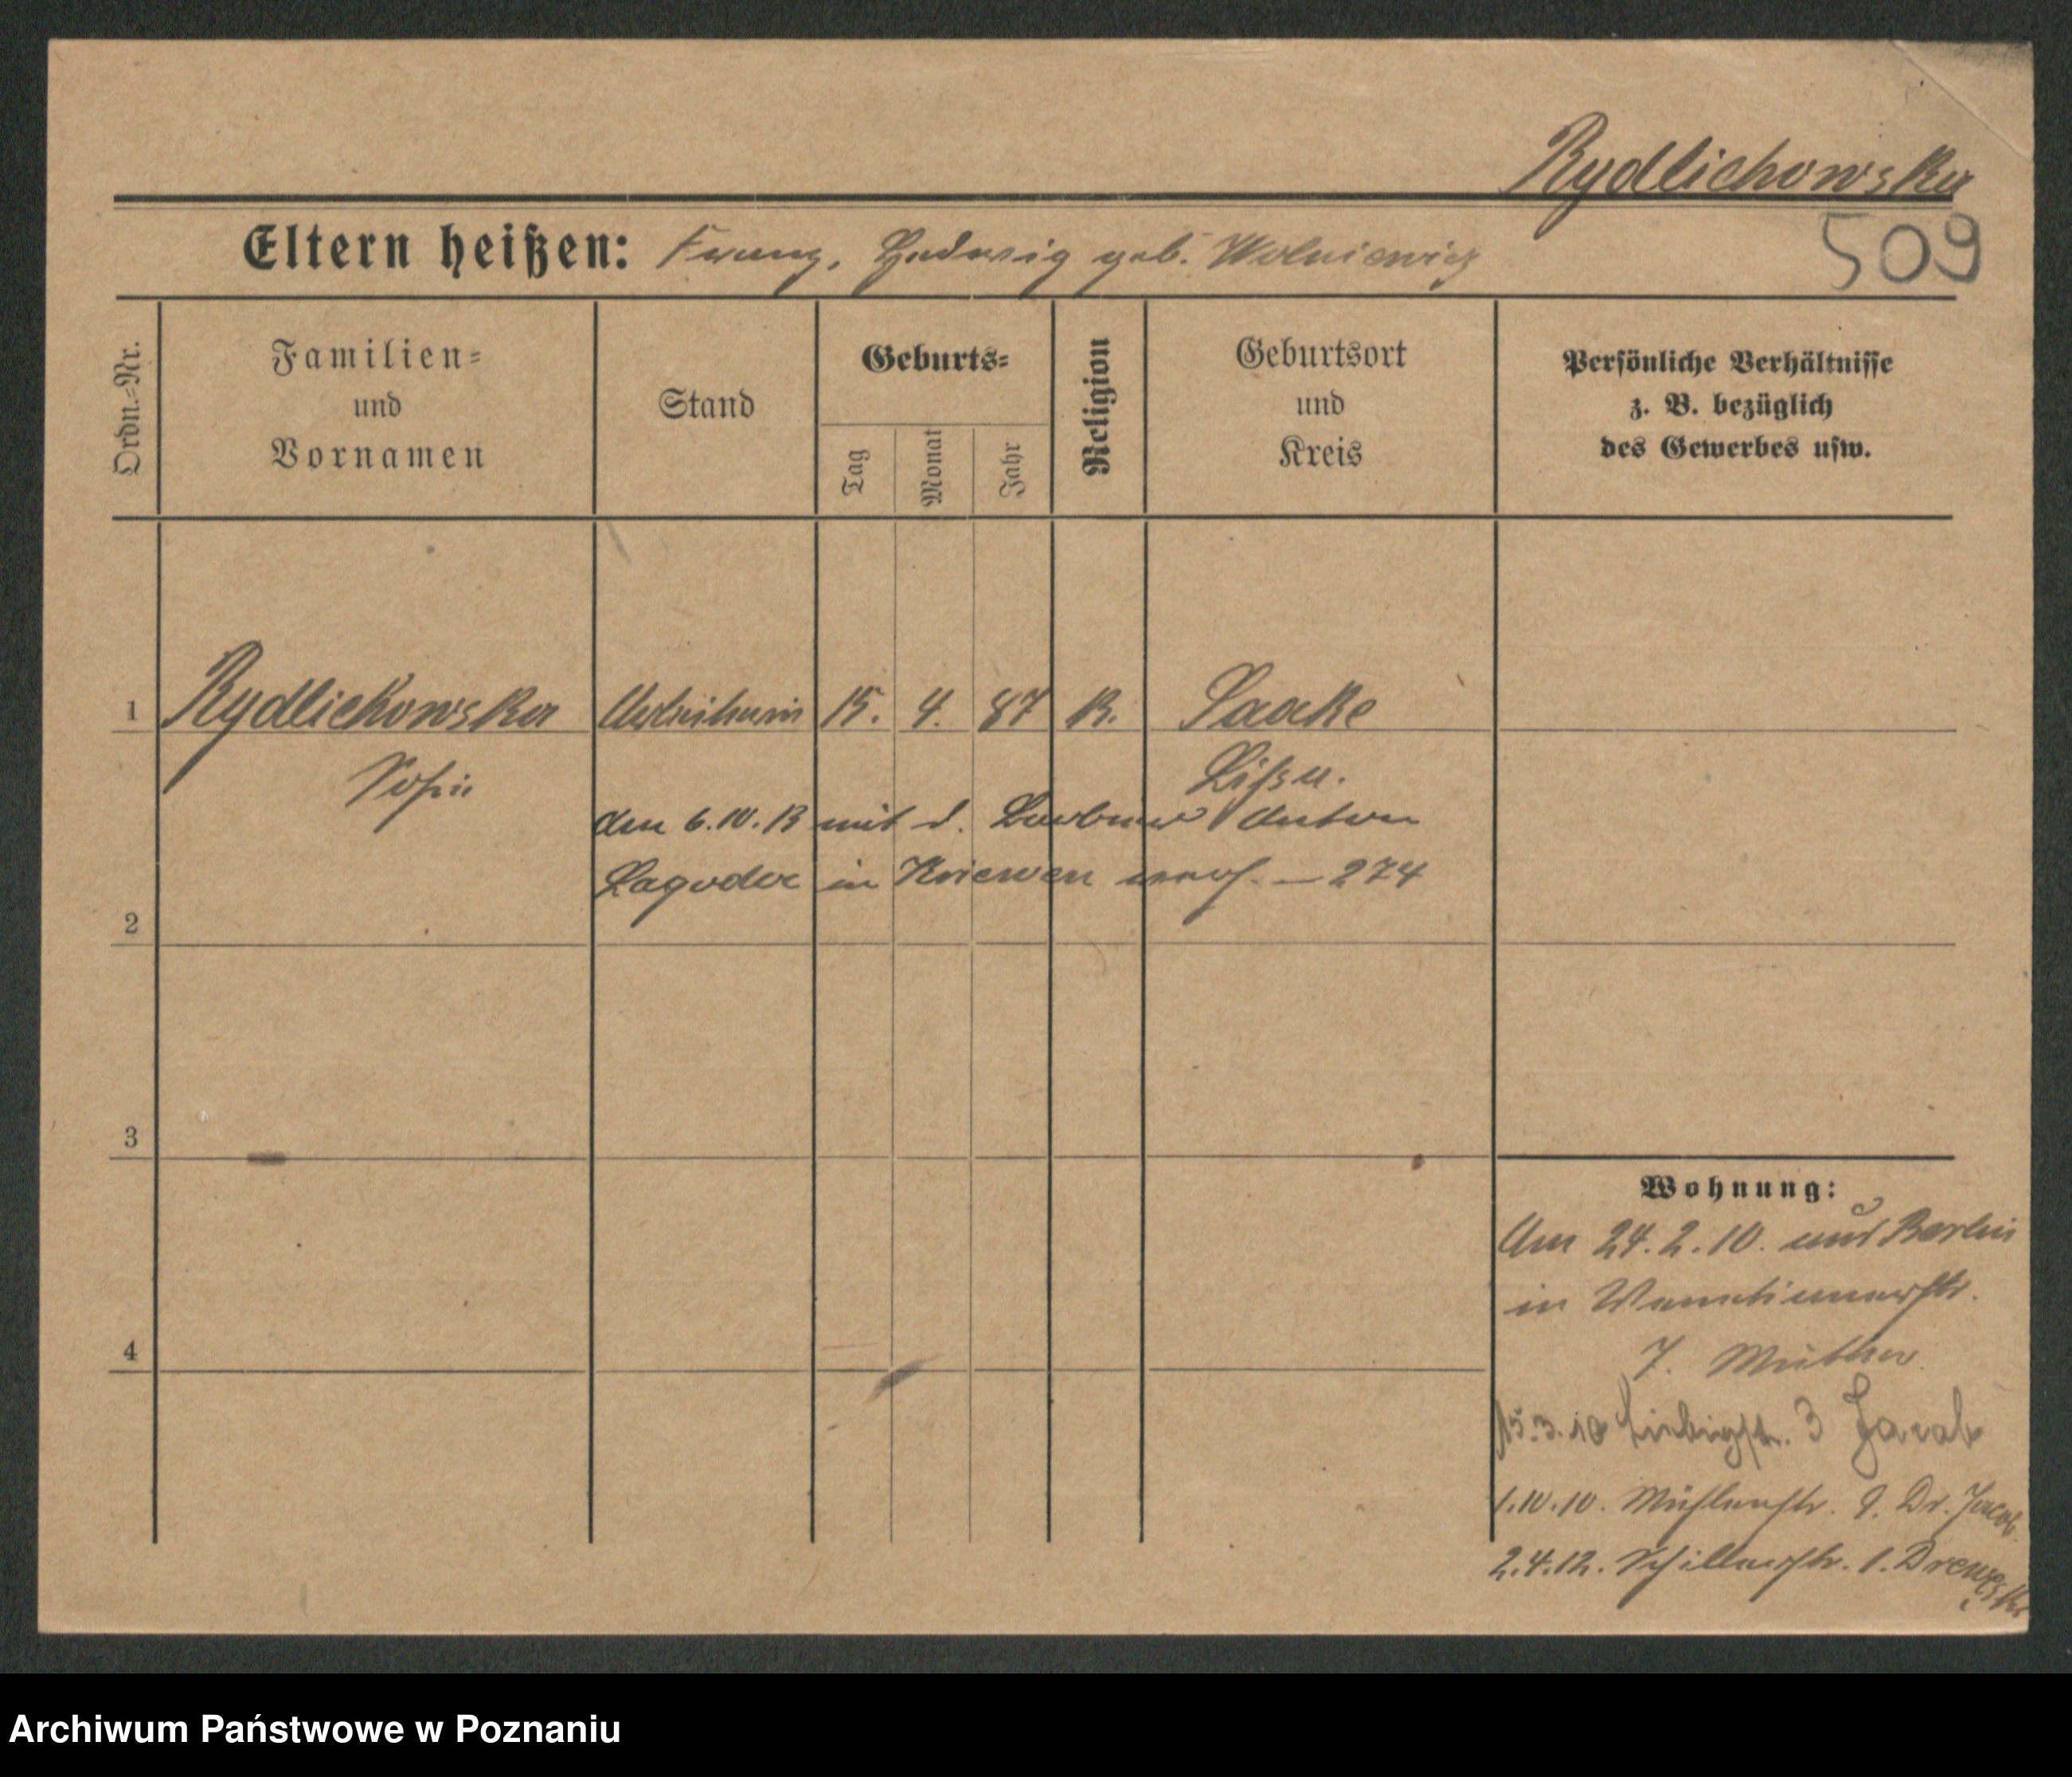 Rydlichowska
509
Eltern heißen: Franz, Hedwig geb. Wolniewicz
Ordn.=Nr.
Familien=
und
Vornamen
Stand
Geburts=
Tag
Monat
Jahr
Religion
Geburtsort
und
Kreis
Persönliche Verhältnisse
z. B. bezüglich
des Gewerbes usw.
1 Rydlichowska Arbeiterin 15. 4. 87 K. Saake
Sofie Lissa.
den 6.10.13 mit d. Anton
Lagoda in Kriewen verh. — 274
2
3
4
Wohnung:
Am 24.2.10. aus Berlin
in
7.
15.3.10 Liebigstr. 3 Jacob
1.10.10. Mühlenstr. 9. Dr. Jacob.
2.4.12. Schillerstr. 1.
Archiwum Państwowe w Poznaniu